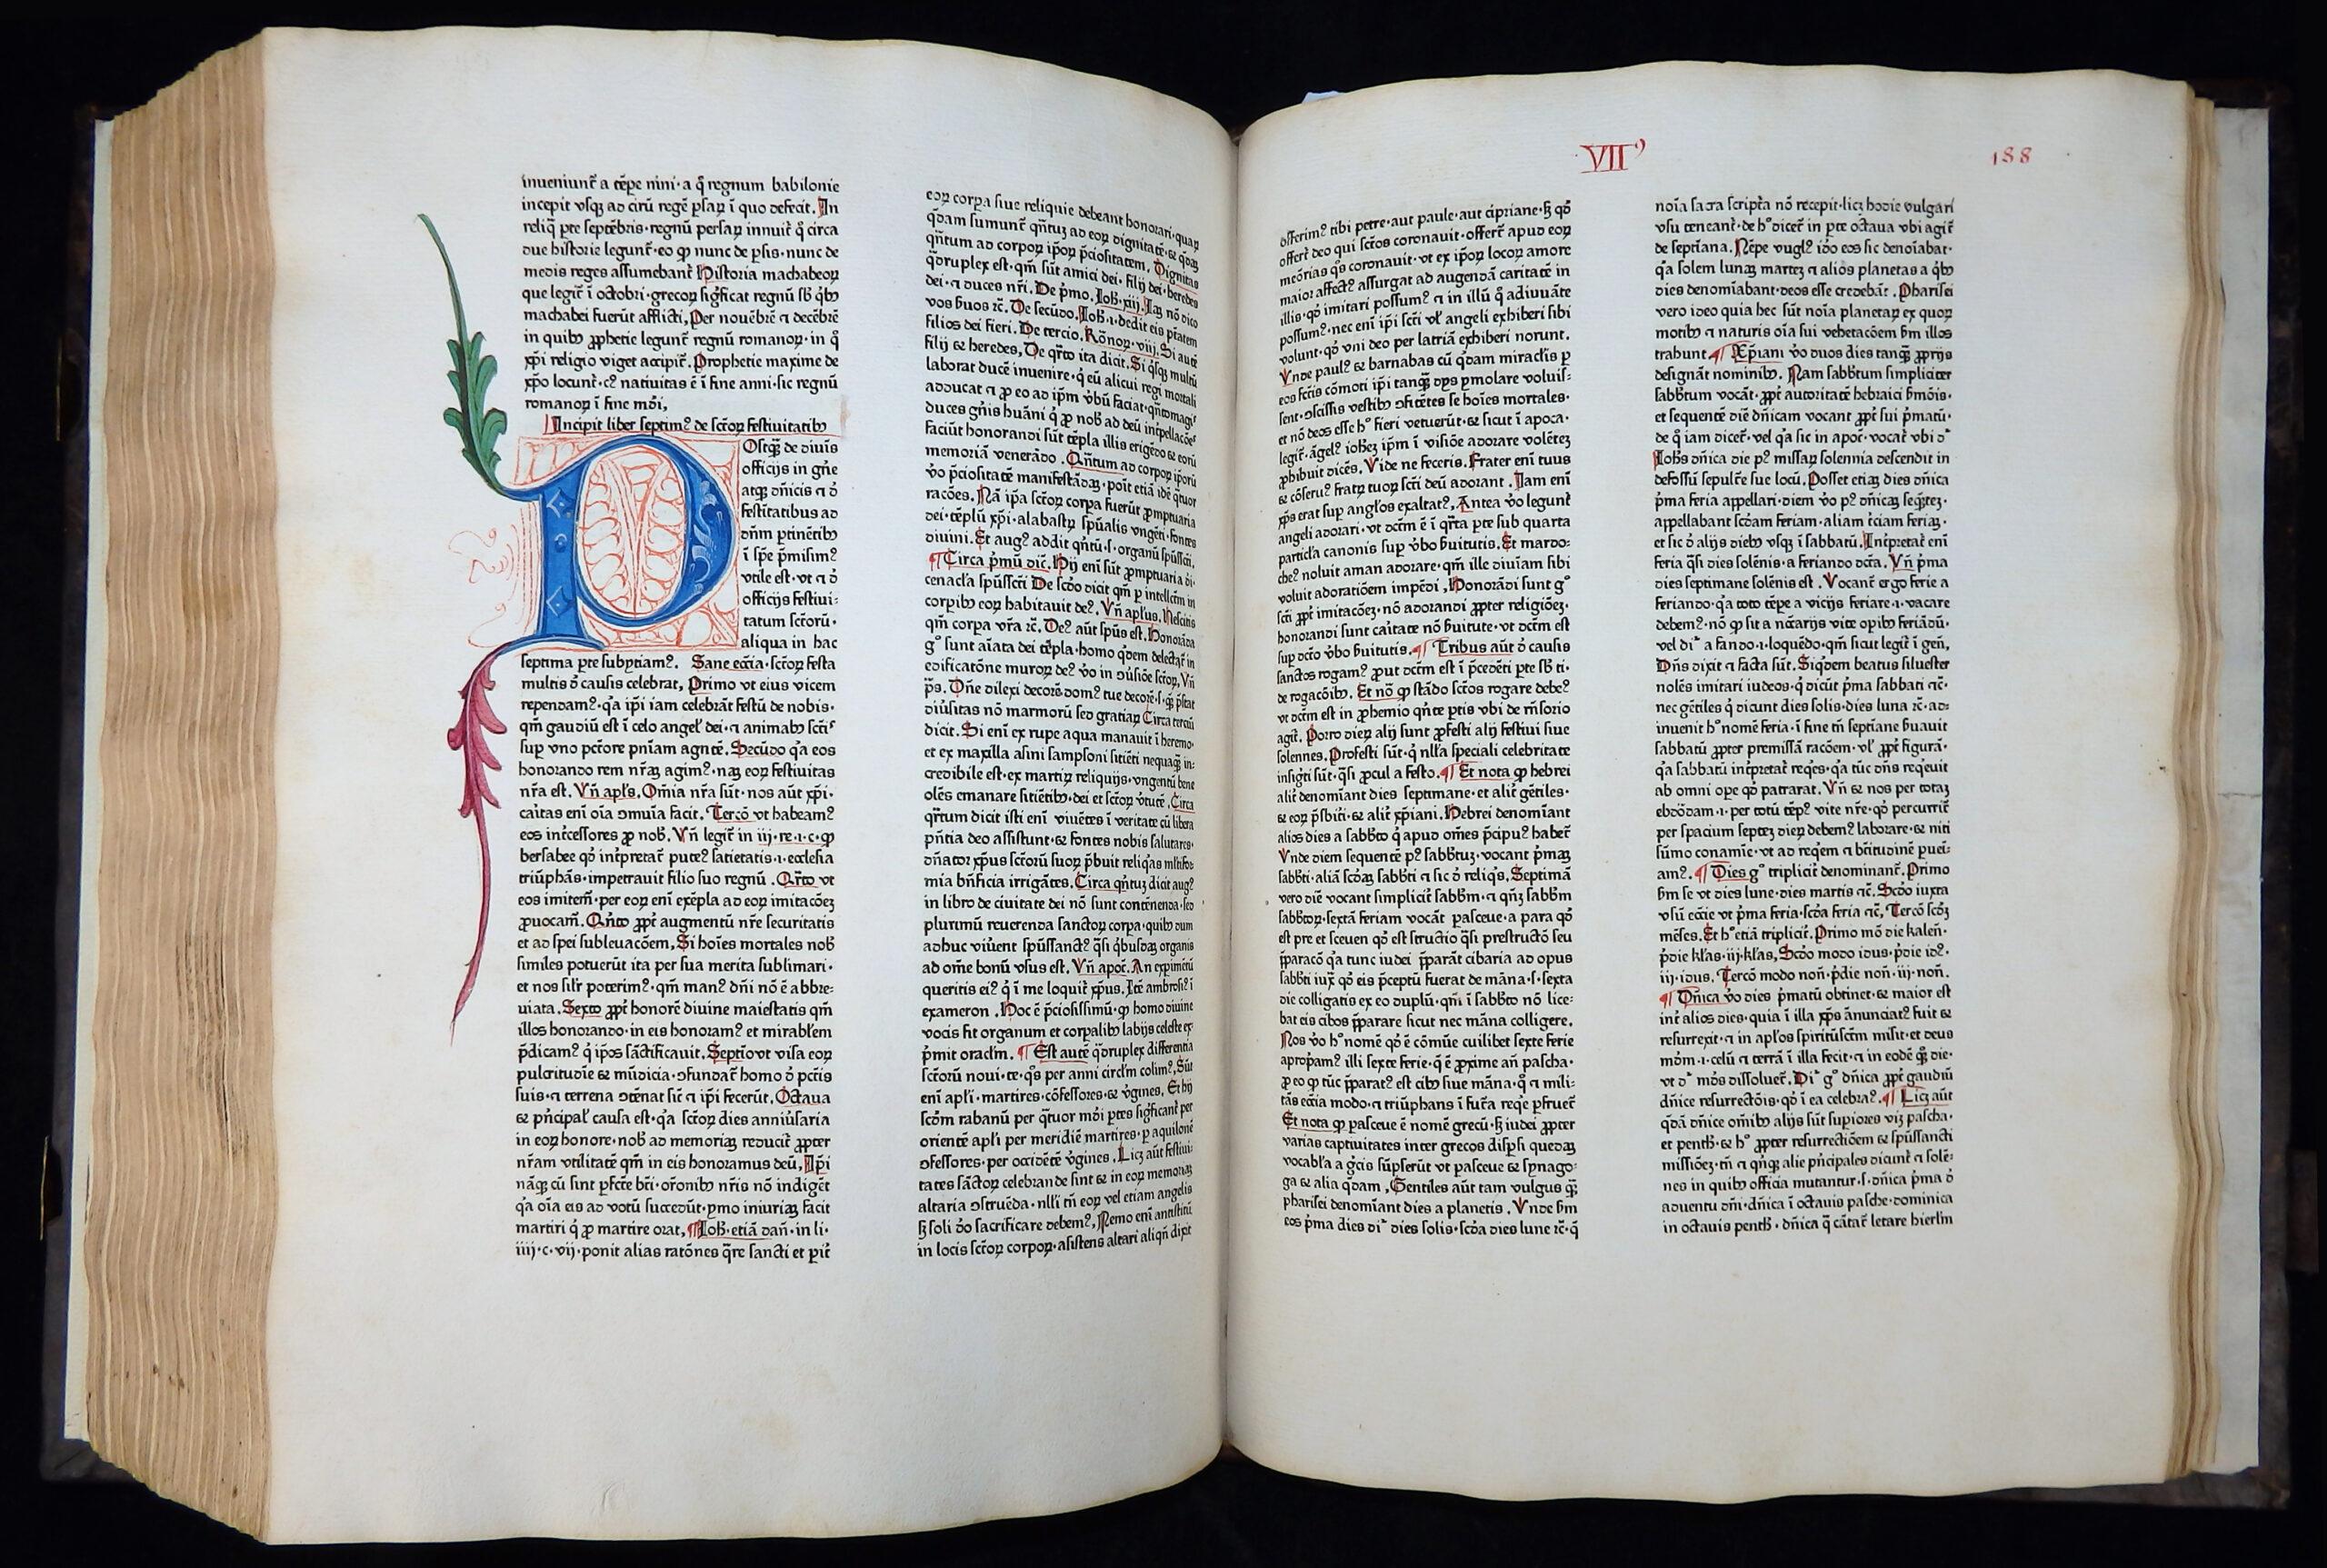 inueniunt̄ a tēpe nini·a q̊ regnum babilonie
incepit vsqꝫ ad cirū regē ꝑsaꝝ ī quo defecit. In
reliq̄ ꝑte septēbris·regnū persaꝝ innuit̄ q̊ circa
due historie legunt̄·eo ꝙ nunc de ꝑsis·nunc de
medis reges assumebant̄ Historia machabeoꝝ
que legit̄ ī octobri·grecoꝝ sigͥficat regnū sb̄ qͥbꝰ
machabei fuerūt afflicti, Per nouēbrē ⁊ decēbrē
in quibꝰ ꝓphetie legunt̄ regnū romanoꝝ·in q̊
xp̄i religio viget accipit̄. Prophetie maxime de
xp̄o locunt̄·cꝰ natiuitas ē ī fine anni·sic regnū
romanoꝝ ī fine mōi,
Incipit liber septimꝰ de sctōꝝ festiuitatibꝰ
POstqꝫ̄ de diuis
officijs in gn̄e
atqꝫ dn̄icis ⁊ ō
festitatibus ad
dn̄m ꝑtinētibꝰ
ī spē p̄misimꝰ
vtile est·vt ⁊ ō
officijs festiui:
tatum sctōrū·
aliqua in hac
septima ꝑte subꝑtiamꝰ. Sane ecc̄ia·sctōꝝ festa
multis ō causis celebrat, Primo vt eius vicem
rependamꝰ·qͣ ip̄i iam celebrāt festū de nobis·
qm̄ gaudiū est ī celo angel̄ dei·⁊ animabꝰ sctīˢ
suꝑ vno pctōre pn̄iam agntē. Secūdo qͣ eos
honorando rem nrāꝫ agimꝰ·naꝫ eoꝝ festiuitas
nrā est. Vn̄ apl̄s. Om̄ia nrā sūt·nos aūt xp̄i·
caitas enī oīa ꝯmuīa facit. Tercō vt habeamꝰ
eos int̄cessores ꝓ nob̄. Vn̄ legit̄ in iij·re·i·c·ꝙ
bersabee qd̊ int̄pretat̄ puteꝰ satietatis·i·ecclesia
triūphās·impetrauit filio suo regnū. Qrtō vt
eos imitem̄·per eoꝝ enī exēpla ad eoꝝ imitacōeꝫ
ꝓuocam̄. Qn̄to ꝓpt̄ augmentū nrē securitatis
et ad spei subleuacōem, Si hoīes mortales nob̄
similes potuerūt ita per sua merita sublimari·
et nos sil̄r poterimꝰ·qm̄ manꝰ dn̄i nō ē abbre:
uiata. Sexto ꝓpt̄ honorē diuine maiestatis qm̄
illos honorando·in eis honoramꝰ et mirabl̄em
p̄dicamꝰ qͥ ip̄os sāctificauit. Septīo vt visa eoꝝ
pulcritudīe ⁊ mūdicia·ꝯfundat̄ homo ō pctīs
suis·⁊ terrena ꝯtēnat sic̄ ⁊ ip̄i fecerūt. Octaua
⁊ pn̄cipal̄ causa est·qͣ sctōꝝ dies anniūsaria
in eoꝝ honore·nob̄ ad memoriaꝫ reducit̄ ꝓpter
nr̄am vtilitatē qm̄ in eis honoramus deū, Ip̄i
nāqꝫ cū sint ꝑfctē btī·orōnibꝰ nrīs nō indigēt
qͣ oīa eis ad votū succedūt·ymo iniuriaꝫ facit
martiri qͥ ꝓ martire orat, ¶Ioh̄·etiā dañ·in li·
iiij·c·vij·ponit alias ratōnes q̄re sancti et pit̄
eoꝝ corꝑa siue reliquie debeant honorari·quaꝝ
q̄dam sumunt̄ qn̄tuꝫ ad eoꝝ dignitatē·⁊ q̄daꝫ
qn̄tum ad corpoꝝ ip̄oꝝ p̄ciositatem. Dignitas
q̄druplex est·qm̄ sūt amici dei·filij dei·heredes
dei·⁊ duces nrī. De p̄mo. Ioh̄·xiij. Iaꝫ nō dico
vos ƀuos ⁊c̄. De secūdo. Ioh̄·i·dedit eis ptātem
filios dei fieri. De tercio. Rōnoꝝ·viij. Si autē
filij ⁊ heredes, De qrtō ita dicit. Si qͥsqꝫ multū
laborat ducē inuenire·qͥ eū alicui regi mortali
adducat ⁊ ꝓ eo ad ip̄m v̄bū faciat·qn̄tomagiˢ
duces gn̄is huāni qͥ ꝓ nob̄ ad deū int̄pellacōeˢ
faciūt honorandi sūt tēpla illis erigēdo ⁊ eorū
memoriā venerādo. Qn̄tum ad corpoꝝ ip̄orū
v̊o p̄ciositatē manifestādaꝫ·poīt etiā idē qͣtuor
racōes. Nā ip̄a sctōꝝ corꝑa fuerūt ꝓmptuaria
dei·tēplū xp̄i·alabastꝝ spūalis vngēti·fontes
diuini. Et augꝰ addit qn̄tū·s·organū spūsscti,
¶Circa p̄mū dic̄. Hij enī sūt ꝓmptuaria di·
cenacl̄a spūsscti De scdō dicit qm̄ ꝑ intellctm̄ in
corꝑibꝰ eoꝝ habitauit deꝰ. Vn̄ apl̄us. Nescitis
qm̄ corꝑa vrā ⁊c̄. Deꝰ aūt spūs est. Honorāda
gͦ sunt aīata dei tēpla·homo qͥdem delectat̄ in
edificatōne muroꝝ deꝰ v̊o in ꝯuūsiōe sctōꝝ, Vn̄
p̄s. Dn̄e dilexi decorē domꝰ tue decorē·s·q̄ p̄stat
diūsitas nō marmorū sed gratiaꝝ Circa terciū
dicit. Si enī ex rupe aqua manauit ī heremo·
et ex maxilla asini sampsoni sitiēti nequaqꝫ in:
credibile est·ex martiꝝ reliquijs·vngentū bene
olēs emanare sitiētibꝰ·dei et sctōꝝ v̊tutē. Circa
qrtum dicit isti enī viuētes ī veritate cū libera
pn̄tia deo assistunt·⁊ fontes nobis salutares·
dn̄ator xp̄us sctōrū suoꝝ p̄buit reliqͥas ml̄tifor
mia bn̄ficia irrigātes. Circa qn̄tuꝫ dicit augꝰ
in libro de ciuitate dei nō sunt contēnenda·sed
plurimū reuerenda sanctoꝝ corꝑa·quibꝰ dum
adhuc viūent spūssanctꝰ qͣsi qͥbusdaꝫ organis
ad om̄e bonū vsus est. Vn̄ apoc̄. An exꝑimētū
queritis eiꝰ qͥ ī me loquit̄ xp̄us. Itē ambrosiꝰ ī
exameron. Hoc ē p̄ciosissimū·ꝙ homo diuine
vocis fit organum et corꝑalibꝰ labijs celeste ex
p̄mit oracl̄m. ¶Est autē q̄druplex differentia
sctōrū noui·te·qͦs per anni circl̄m colimꝰ, Sūt
enī apl̄i·martires·cōfessores·⁊ v̊gines, Et hij
scd̄m rabanū per qͣtuor mōi ꝑtes sigͥficant̄ per
orientē apl̄i per meridiē martires·ꝑ aquilonē
ꝯfessores·per occidētē v̊gines. Licꝫ aūt festiui:
tates sāctoꝝ celebrande sint ⁊ in eoꝝ memoriaꝫ
altaria ꝯstruēda·nll̄i tn̄ eoꝝ vel etiam angelis
ꝫ soli d̊o sacrificare debemꝰ, Nemo enī antistitū
in locis sctōꝝ corpoꝝ·assistens altari aliqn̄ dixit
VIIꝰ
188
offerimꝰ tibi petre·aut paule·aut cipriane·ꝫ qd̊
offert̄ deo qui sctōs coronauit·offert̄ apud eoꝝ
meōrias qͦs coronauit·vt ex ip̄oꝝ locoꝝ amore
maior affectꝰ assurgat ad augendā caritatē in
illis·qͦs imitari possumꝰ ⁊ in illū q̊ adiuuāte
possumꝰ·nec enī ip̄i sctī vl̄ angeli exhiberi sibi
volunt·qd̊ vni deo per latriā exhiberi norunt.
Vnde paulꝰ ⁊ barnabas cū qͥdam miracl̄is ꝑ
eos fctīs cōmoti ip̄i tanqꝫ̄ dijs ymolare voluis:
sent·ꝯscissis vestibꝰ ꝯfitētes se hoīes mortales·
et nō deos esse hͦ fieri vetuerūt·⁊ sicut ī apoca·
legit̄·āgel̄ꝰ iohēꝫ ip̄m ī visiōe adorare volēteꝫ
ꝓhibuit dicēs. Vide ne feceris. Frater enī tuus
⁊ cōseruꝰ fratꝝ tuoꝝ sctī deū adorant. Iam enī
xp̄s erat suꝑ angl̄os exaltatꝰ, Antea v̊o legunt̄
angeli adorari·vt dctm̄ ē ī qrtā ꝑte sub quarta
particl̄a canonis suꝑ v̊bo ƀuitutis. Et mardo:
cheꝰ noluit aman adorare·qm̄ ille diuīam sibi
voluit adoratiōem impēdi, Honorādi sunt gͦ
sctī ꝓpt̄ imitacōeꝫ·nō adorandi ꝓpter religiōeꝫ·
honorandi sunt caitate nō ƀuitute·vt dctm̄ est
sup dctō v̊bo ƀuitutis. ¶Tribus aūt ō causis
sanctos rogamꝰ ꝓut dctm̄ est ī p̄cedēti ꝑte sb̄ ti·
de rogacōibꝰ. Et nō ꝙ stādo sctōs rogare debeꝰ
vt dctm̄ est in ꝓhemio qn̄te ꝑtis vbi de n̄risorio
agit̄. Porro dieꝝ alij sunt ꝓfesti alij festiui siue
solennes. Profesti sūt·qͥ nll̄a speciali celebritate
insigͥti sūt·qͣsi ꝓcul a festo. ¶Et nota ꝙ hebrei
alit̄ denomīant dies septimane·et alit̄ gētiles·
⁊ eoꝝ p̄sbiti·⁊ alit̄ xp̄iani. Hebrei denomīant
alios dies a sabbto qͥ apud om̄es p̄cipuꝰ habet̄
Vnde diem sequentē pꝰ sabbtuꝫ·vocant p̄maꝫ
sabbti·aliā scdāꝫ sabbti ⁊ sic ō reliqͥs, Septimā
vero diē vocant simplicit̄ sabbm̄·⁊ qn̄ꝫ sabbm̄
sabbtoꝝ·sextā feriam vocāt pasceue·a para qd̊
est pre et sceuen qd̊ est structio qͣsi prestructō seu
p̄paracō qͣ tunc iudei p̄parāt cibaria ad opus
sabbti iuxͣ qd̊ eis p̄ceptū fuerat de māna·s·sexta
die colligatis ex eo duplū·qm̄ ī sabbto nō lice:
bat eis cibos p̄parare sicut nec māna colligere.
Nos v̊o hͦ nomē qd̊ ē cōmūe cuilibet sexte ferie
apropamꝰ illi sexte ferie·q̄ ē ꝓxime an̄ pascha·
ꝓ eo ꝙ tūc p̄paratꝰ est cibꝰ siue māna·q̊ ⁊ mili:
tās ecc̄ia modo·⁊ triūphans ī futā reqͥe ꝑfruet̄
Et nota ꝙ pasceue ē nomē grecū·ꝫ iudei ꝓpter
varias captiuitates inter grecos disꝑsi quedaꝫ
vocabl̄a a gͣcis sūpserūt vt pasceue ⁊ synago:
ga ⁊ alia q̄dam, Gentiles aūt tam vulgus qꝫ̄
pharisei denomīant dies a planetis. Vnde ƀm
eos p̄ma dies dīꝰ dies solis·scdā dies lune ⁊c̄·q̄
noīa sacra scriptā nō recepit·licꝫ hodie vulgari
vsu teneant̄·de hͦ dicet̄ in ꝑte octaua vbi agit̄
de septīana. Nēpe vuglꝰ id̊o eos sic denoīabat·
qͣ solem lunaꝫ martēꝫ ⁊ alios planetas a qͥbꝰ
dies denomīabant·deos esse credebāt. Pharisei
vero ideo quia hec sūt noīa planetaꝝ ex quoꝝ
motibꝰ ⁊ naturis oīa sui vehetacōem ƀm illos
trahunt ¶Xp̄iani v̊o duos dies tanqꝫ̄ ꝓprijs
designāt nominibꝰ. Nam sabbtum simpliciter
sabbtum vocāt·ꝓpt̄ autoritatē hebraici ƀmōis·
et sequentē diē dn̄icam vocant ꝓpt̄ sui p̄matū·
de q̊ iam dicet̄·vel qͣ sic in apoc̄·vocat̄ vbi dꝰ
Ioh̄s dn̄ica die pꝰ missaꝝ solennia descendit in
defossū sepulcrē sue locū. Posset etiaꝫ dies dn̄ica
p̄ma feria appellari·diem v̊o pꝰ dn̄icaꝫ seqn̄teꝫ·
appellabant scdam feriam·aliam tc̄iam feriaꝫ·
et sic ō alijs diebꝰ vsqꝫ ī sabbatū. Int̄pretat̄ enī
feria qͣsi dies solēnis·a feriando dctā. Vn̄ p̄ma
dies septimane solēnis est. Vocant̄ ergo ferie a
feriando·qͣ toto tēpe a vicijs feriare·i·vacare
debemꝰ·nō ꝙ sit a nc̄arijs vite opibꝰ feriādū·
vel dīꝰ a fando·i·loquēdo·qm̄ sicut legit̄ ī gen̄,
Dn̄s dixit ⁊ facta sūt. Siqͥdem beatus siluester
nolēs imitari iudeos·qͥ dicūt p̄ma sabbati ⁊c̄·
nec gētiles qͥ dicunt dies solis·dies luna ⁊c̄·ad:
inuenit hͦ nomē feria·ī fine tn̄ septīane ƀuauit
sabbatū ꝓpter premissā racōem·vl̄ ꝓpt̄ figurā·
qͣ sabbatū int̄pretat̄ reqͥes·qͣ tūc dn̄s reqͥeuit
ab omni opꝑe qd̊ patrarat. Vn̄ ⁊ nos per totaꝫ
ebdōdam·i·per totū tēpꝰ vite nrē·qd̊ percurrit̄
per spacium septeꝫ dieꝝ debemꝰ laborare·⁊ niti
sūmo conamīe·vt ad reqͥem ⁊ btitudinē puei:
amꝰ. ¶Dies gͦ triplicit̄ denominant̄. Primo
ƀm se vt dies lune·dies martis ⁊c̄. Scdō iuxta
vsū ecc̄ie vt p̄ma feria·scdā feria ⁊c̄, Tercō scd̄ꝫ
mēses. Et hͦ etiā triplicit̄. Primo mō die kalen̄·
p̄die kl̄as·iij·kl̄as, Scdō modo idus·p̄die idꝰ·
iij·idus. Tercō modo non̄·p̄die non̄·iij·non̄.
¶Dn̄ica v̊o dies p̄matū obtinet·⁊ maior est
int̄ alios dies·quia ī illa xp̄s ānunciatꝰ fuit ⁊
resurrexit·⁊ in apl̄os spiritūsctm̄ misit·et deus
mōm·i·celū ⁊ terrā ī illa fecit·⁊ in eodē qꝫ̄ die·
vt dꝰ mōs dissoluet̄. Diꝰ gͦ dn̄ica ꝓpt̄ gaudiū
dn̄ice resurrectōis·qd̊ ī ea celebraꝰ. ¶Licꝫ aūt
q̄dā dn̄ice om̄ibꝰ alijs sūt supiores viꝫ pascha·
et pentħ·⁊ hͦ ꝓpter resurrectiōem ⁊ spūssancti
missiōeꝫ·tn̄ ⁊ qn̄qꝫ alie pn̄cipales dicunt̄ ⁊ solē:
nes in quibꝰ officia mutantur·s·dn̄ica p̄ma ō
aduentu dn̄i·dn̄ica ī octauis pasche·dominica
in octauis pentħ·dn̄ica q̄ cātat̄ letare hierl̄m